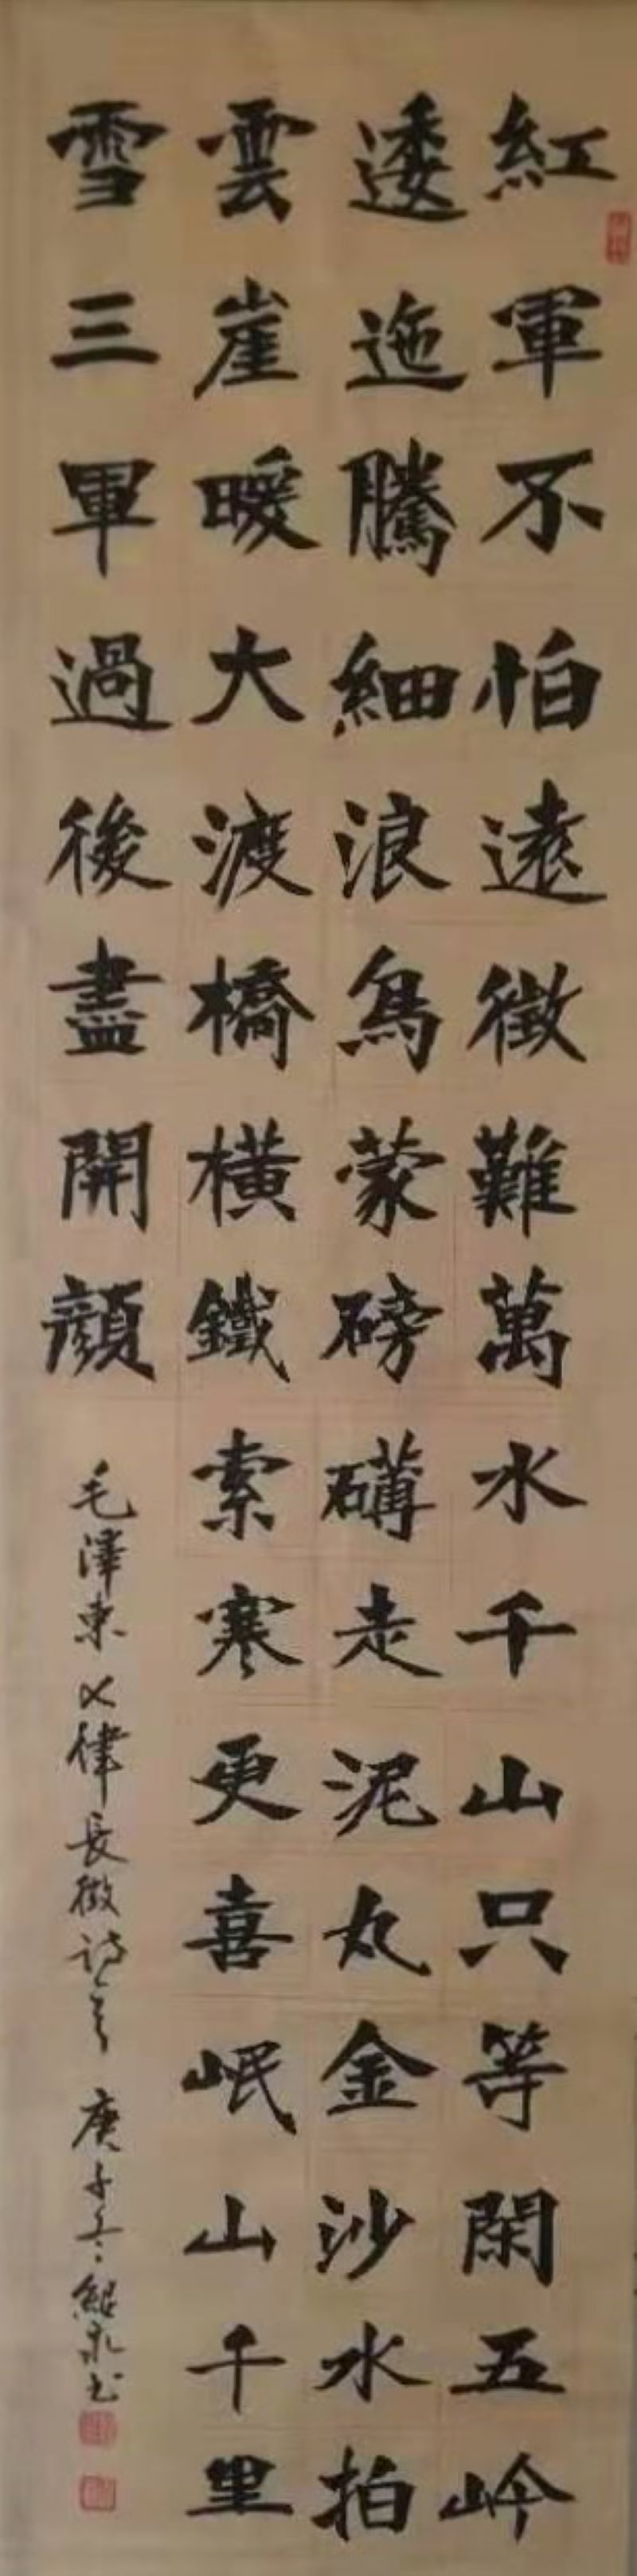 紅軍不怕遠徵難萬水千山只等閑五岭
逶迤騰細浪烏蒙磅礴走泥丸金沙水拍
雲崖暖大渡橋橫鐵索寒更喜岷山千里
雪三軍過後盡開顏
毛澤東七律長徵詩一首 庚子冬 紹永书